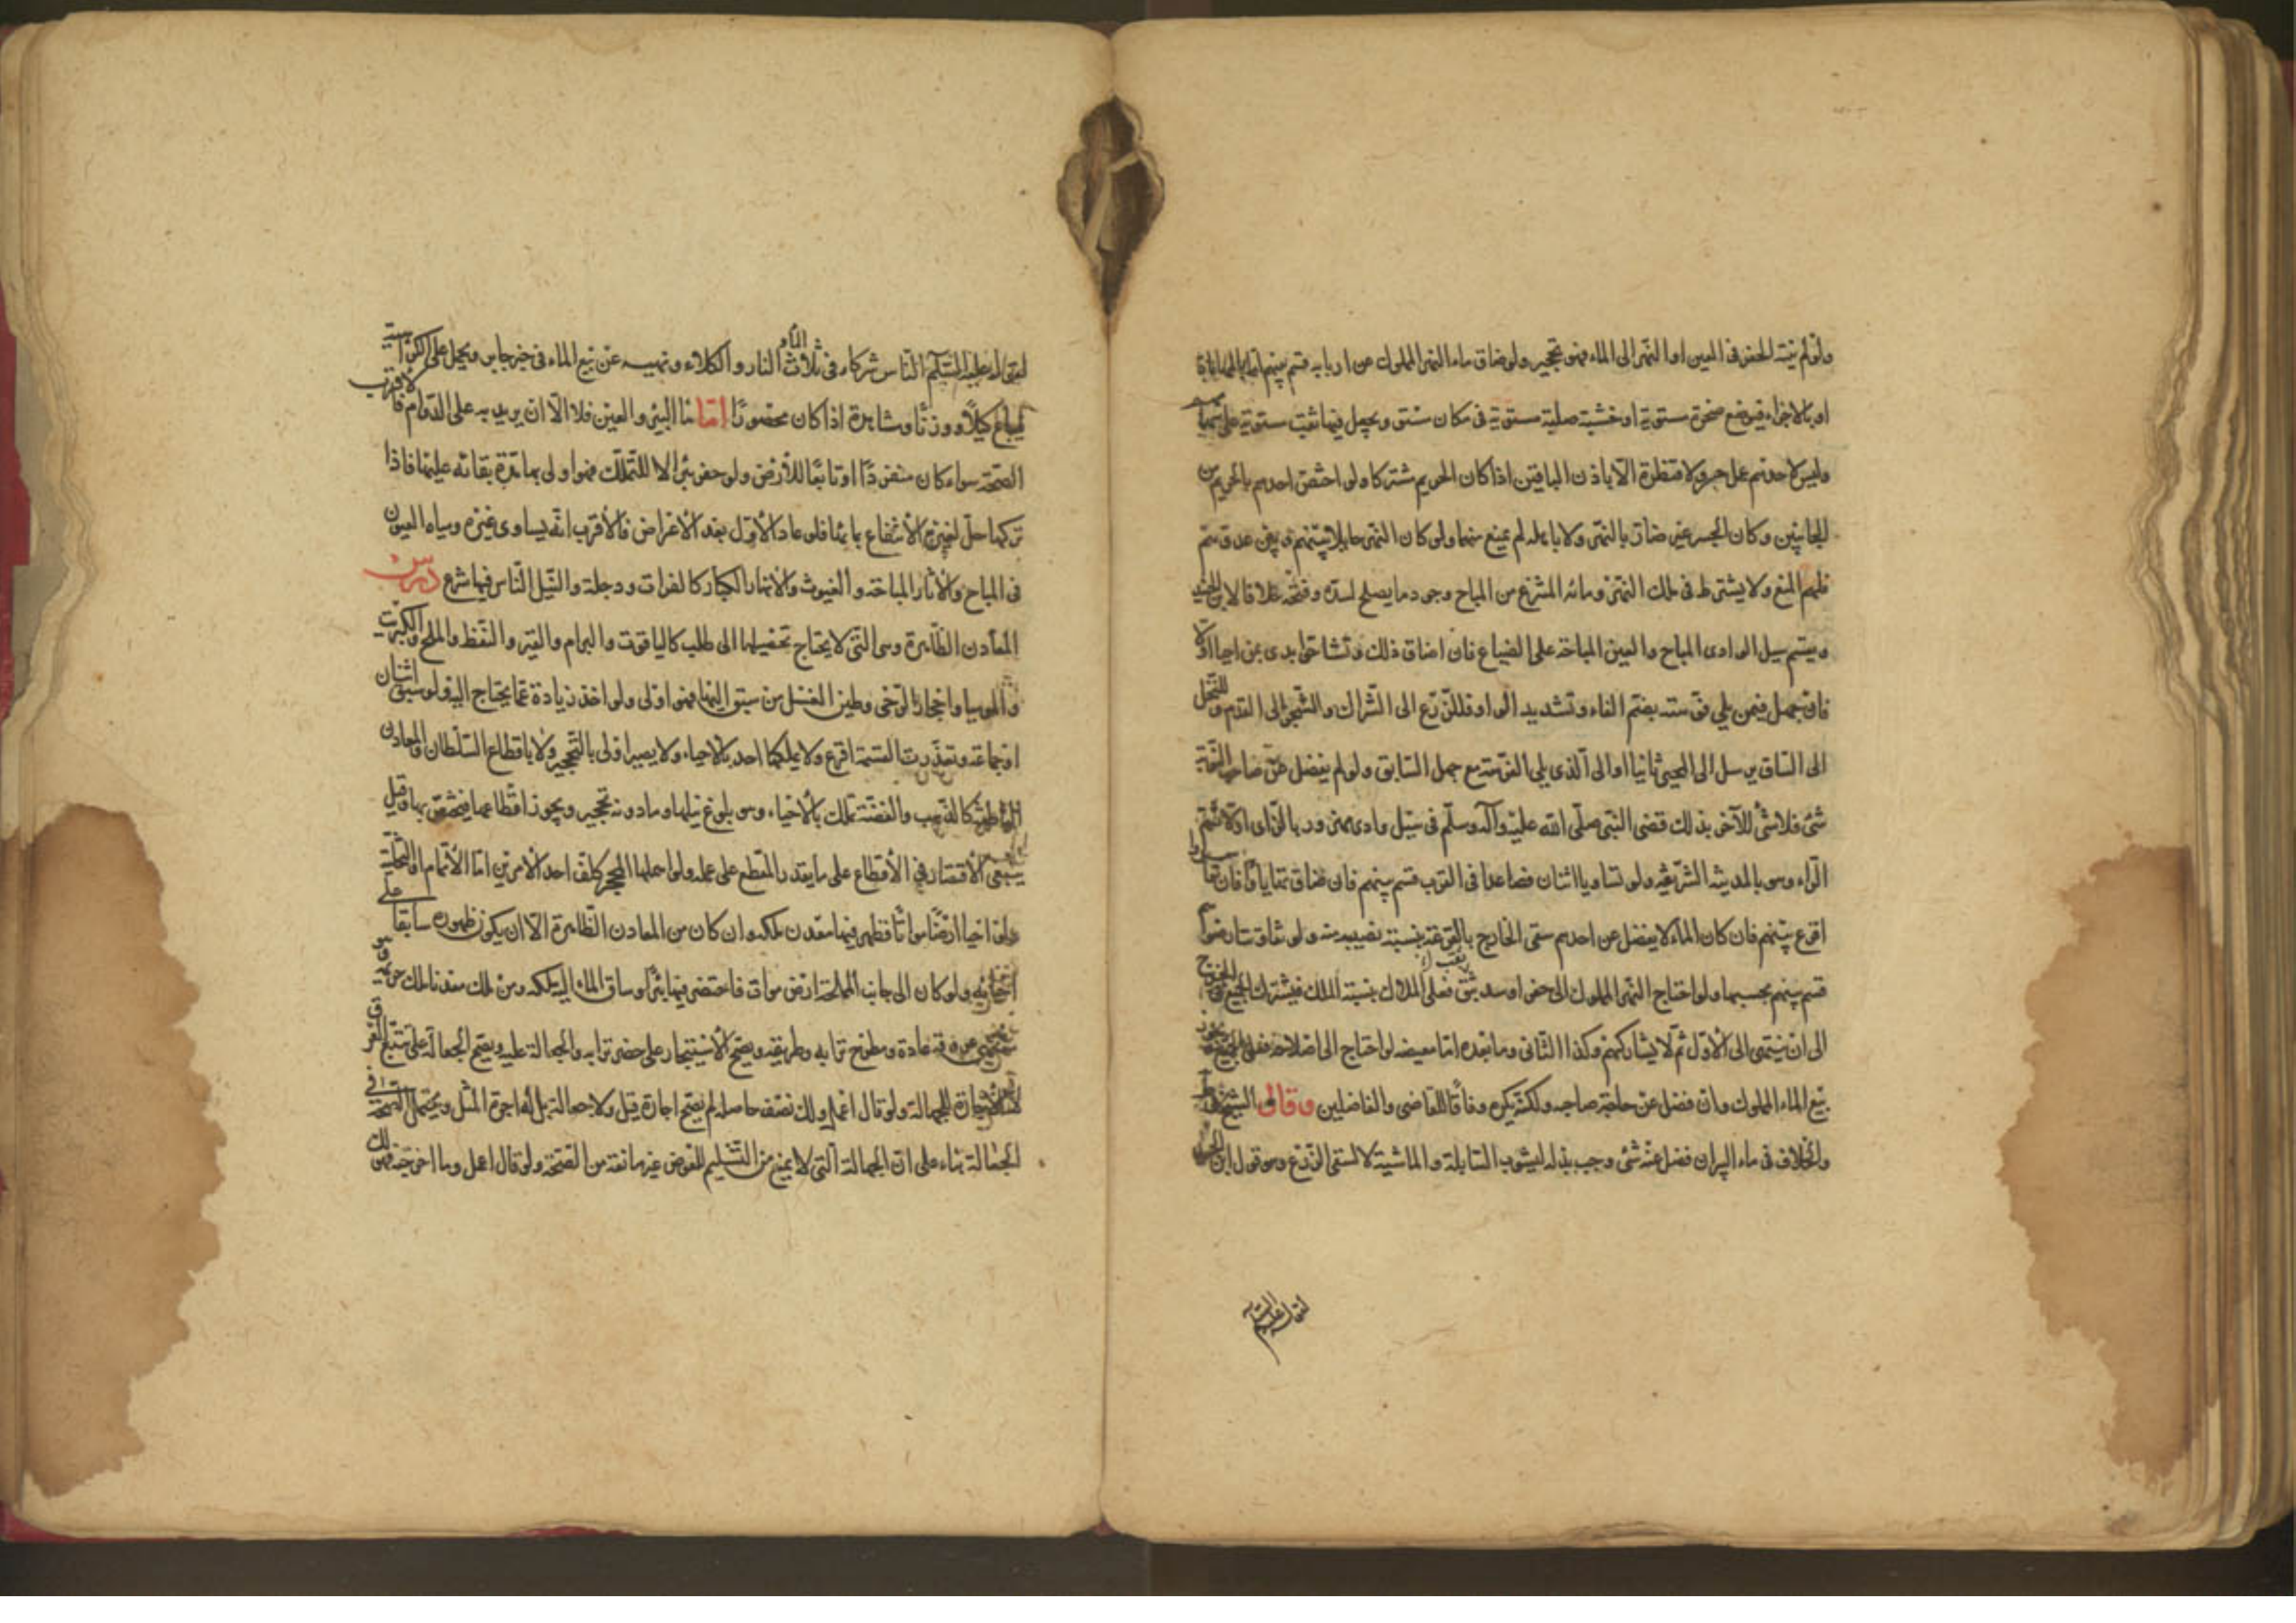 ولو لم ينته الحفر فى العين او النهر الى الماء فهو تحجير ولو ضاق ماء النهر المملوك عن اربابه قسم بينهم اما بالمهاياة
او بالاجزاء فيوضع صخرة مستوية او خشبة صلبة مستوية فى مكان مستو ويجعل فيها ثقب مستوية على
وليس لاحدهم عمل جسر ولا قنطرة الا باذن الباقين اذا كان الحريم مشتركا ولو اختص احدهم بالحريم من
الجانبين وكان الجسر غير ضائر بالنهر ولا بامله لم يمنع منها ولو كان النهر حايلا بينهم وبين عدوهم
فلهم المنع ولا يشترط فى ملك النهر ومائه المشرع من المباح وجود ما يصلح لسده وفتحه خلافا لابن الجنيد
ويقسم سيل الوادى المباح والعين المباحة على الضياع فان ضاق ذلك وتشاحوا بدى بمن احيا اولا
فان جهل فمن يلي فوهته بضم الفاء وتشديد الواو فللزرع الى الشراك والشجر الى القدم وللنخل
الى الساق ثم يرسل الى المحيى ثانيا او الى الذى يلي الفوهة مع جهل السابق ولو لم يفضل عن صاحب النوبة
شئ فلا شئ للآخر بذلك قضى النبى صلى الله عليه وآله وسلم فى سيل وادى مهزور بالزاى اولا ثم
الراء وهو بالمدينة الشريفة ولو تساويا اثنان فصاعدا فى القرب قسم بينهم فان ضاق تهايا فان
اقرع بينهم فان كان الماء لا يفضل عن احدهم سقى الخارج بالقرعة بنسبة نصيبه منه ولو
قسم بينهم بحسبها ولو احتاج النهر المملوك الى حفر او سد بثق فعلى الملاك بنسبة الملك فيشترك الجميع
الى ان ينتهى الى الاول ثم لا يشاركهم وكذا الثانى وما بعده اما مفيضه لو احتاج الى اصلاح فعلى الجميع
بيع الماء المملوك وان فضل عن حاجة صاحبه ولكنه يكره وفاقا للقاضى والفاضلين وقال الشيخ
والخلاف فى ماء البئر ان فضل عنه شئ وجب بذله لشرب السابلة والماشية لا لسقى الزرع وهو قول ابن الجنيد
لقوله عليه السلم
لقوله عليه السلم الناس شركاء فى ثلاث الماء والنار والكلاء ونهيه عن بيع الماء فى خبر جابر ويحمل على الكراهية
ويباع كيلا ووزنا ومشاهدة اذا كان محصورا اما ماء البئر والعين فلا الا ان يريد به على الدوام فالاقرب
الصحة سواء كان منفردا او تابعا للارض ولو حفر بئرا لا للتملك فهو اولى بها مدة بقائه عليها فاذا
تركها حل لغيره الانتفاع بمائها فلو عاد الاول بعد الاعراض فالاقرب انه يساوى غيره ومياه العيون
فى المباح والآبار المباحة والغيوث والانهار الكبار كالفرات ودجلة والنيل الناس فيها شرع درس
المعادن الظاهرة وهى التى لا يحتاج تحصيلها الى طلب كالياقوت والبرام والقير والنفط والملح والكبريت
والموميا واحجار الرحى وطين الغسل من سبق اليها فهو اولى ولو اخذ زيادة عما يحتاج اليه ولو سبق اثنان
او جماعة وتعذرت القسمة اقرع ولا يملكها احد بالاحياء ولا يصير اولى بالتحجير ولا باقطاع السلطان والمعادن
الباطنة كالذهب والفضة تملك بالاحياء وهو بلوغ نيلها وما دونه تحجير ويجوز اقطاعها فيختص بها وقيل
ينبغى الاقتصار فى الاقطاع على ما يقدر المقطع على عمله ولو اهملها المحجر كلف احد الامرين اما الاتمام او التخلية
ولو احيا ارضا مواتا فظهر فيها معدن ملكه وان كان من المعادن الظاهرة الا ان يكون ظهوره سابقا على
احيائه ولو كان الى جانب المملحة ارض موات فاحتفر فيها بئرا وساق الماء اليه ملكه ومن ملك معدنا ملك حريمه وهو
منتهى عروقه عادة ومطرح ترابه وطريقه ويصح الاستيجار على حفر ترابه والجعالة عليه ويصح الجعالة على تتبع العروق
لا الاجارة للجهالة ولو قال اعمل ولك نصف حاصله لم يصح اجارة قيل ولا جعالة بل له اجرة المثل ويحتمل الصحة فى
الجعالة بناء على ان الجهالة التى لا يمنع من التسليم للعوض غير مانعة من الصحة ولو قال اعمل وما اخرجته فهو لك